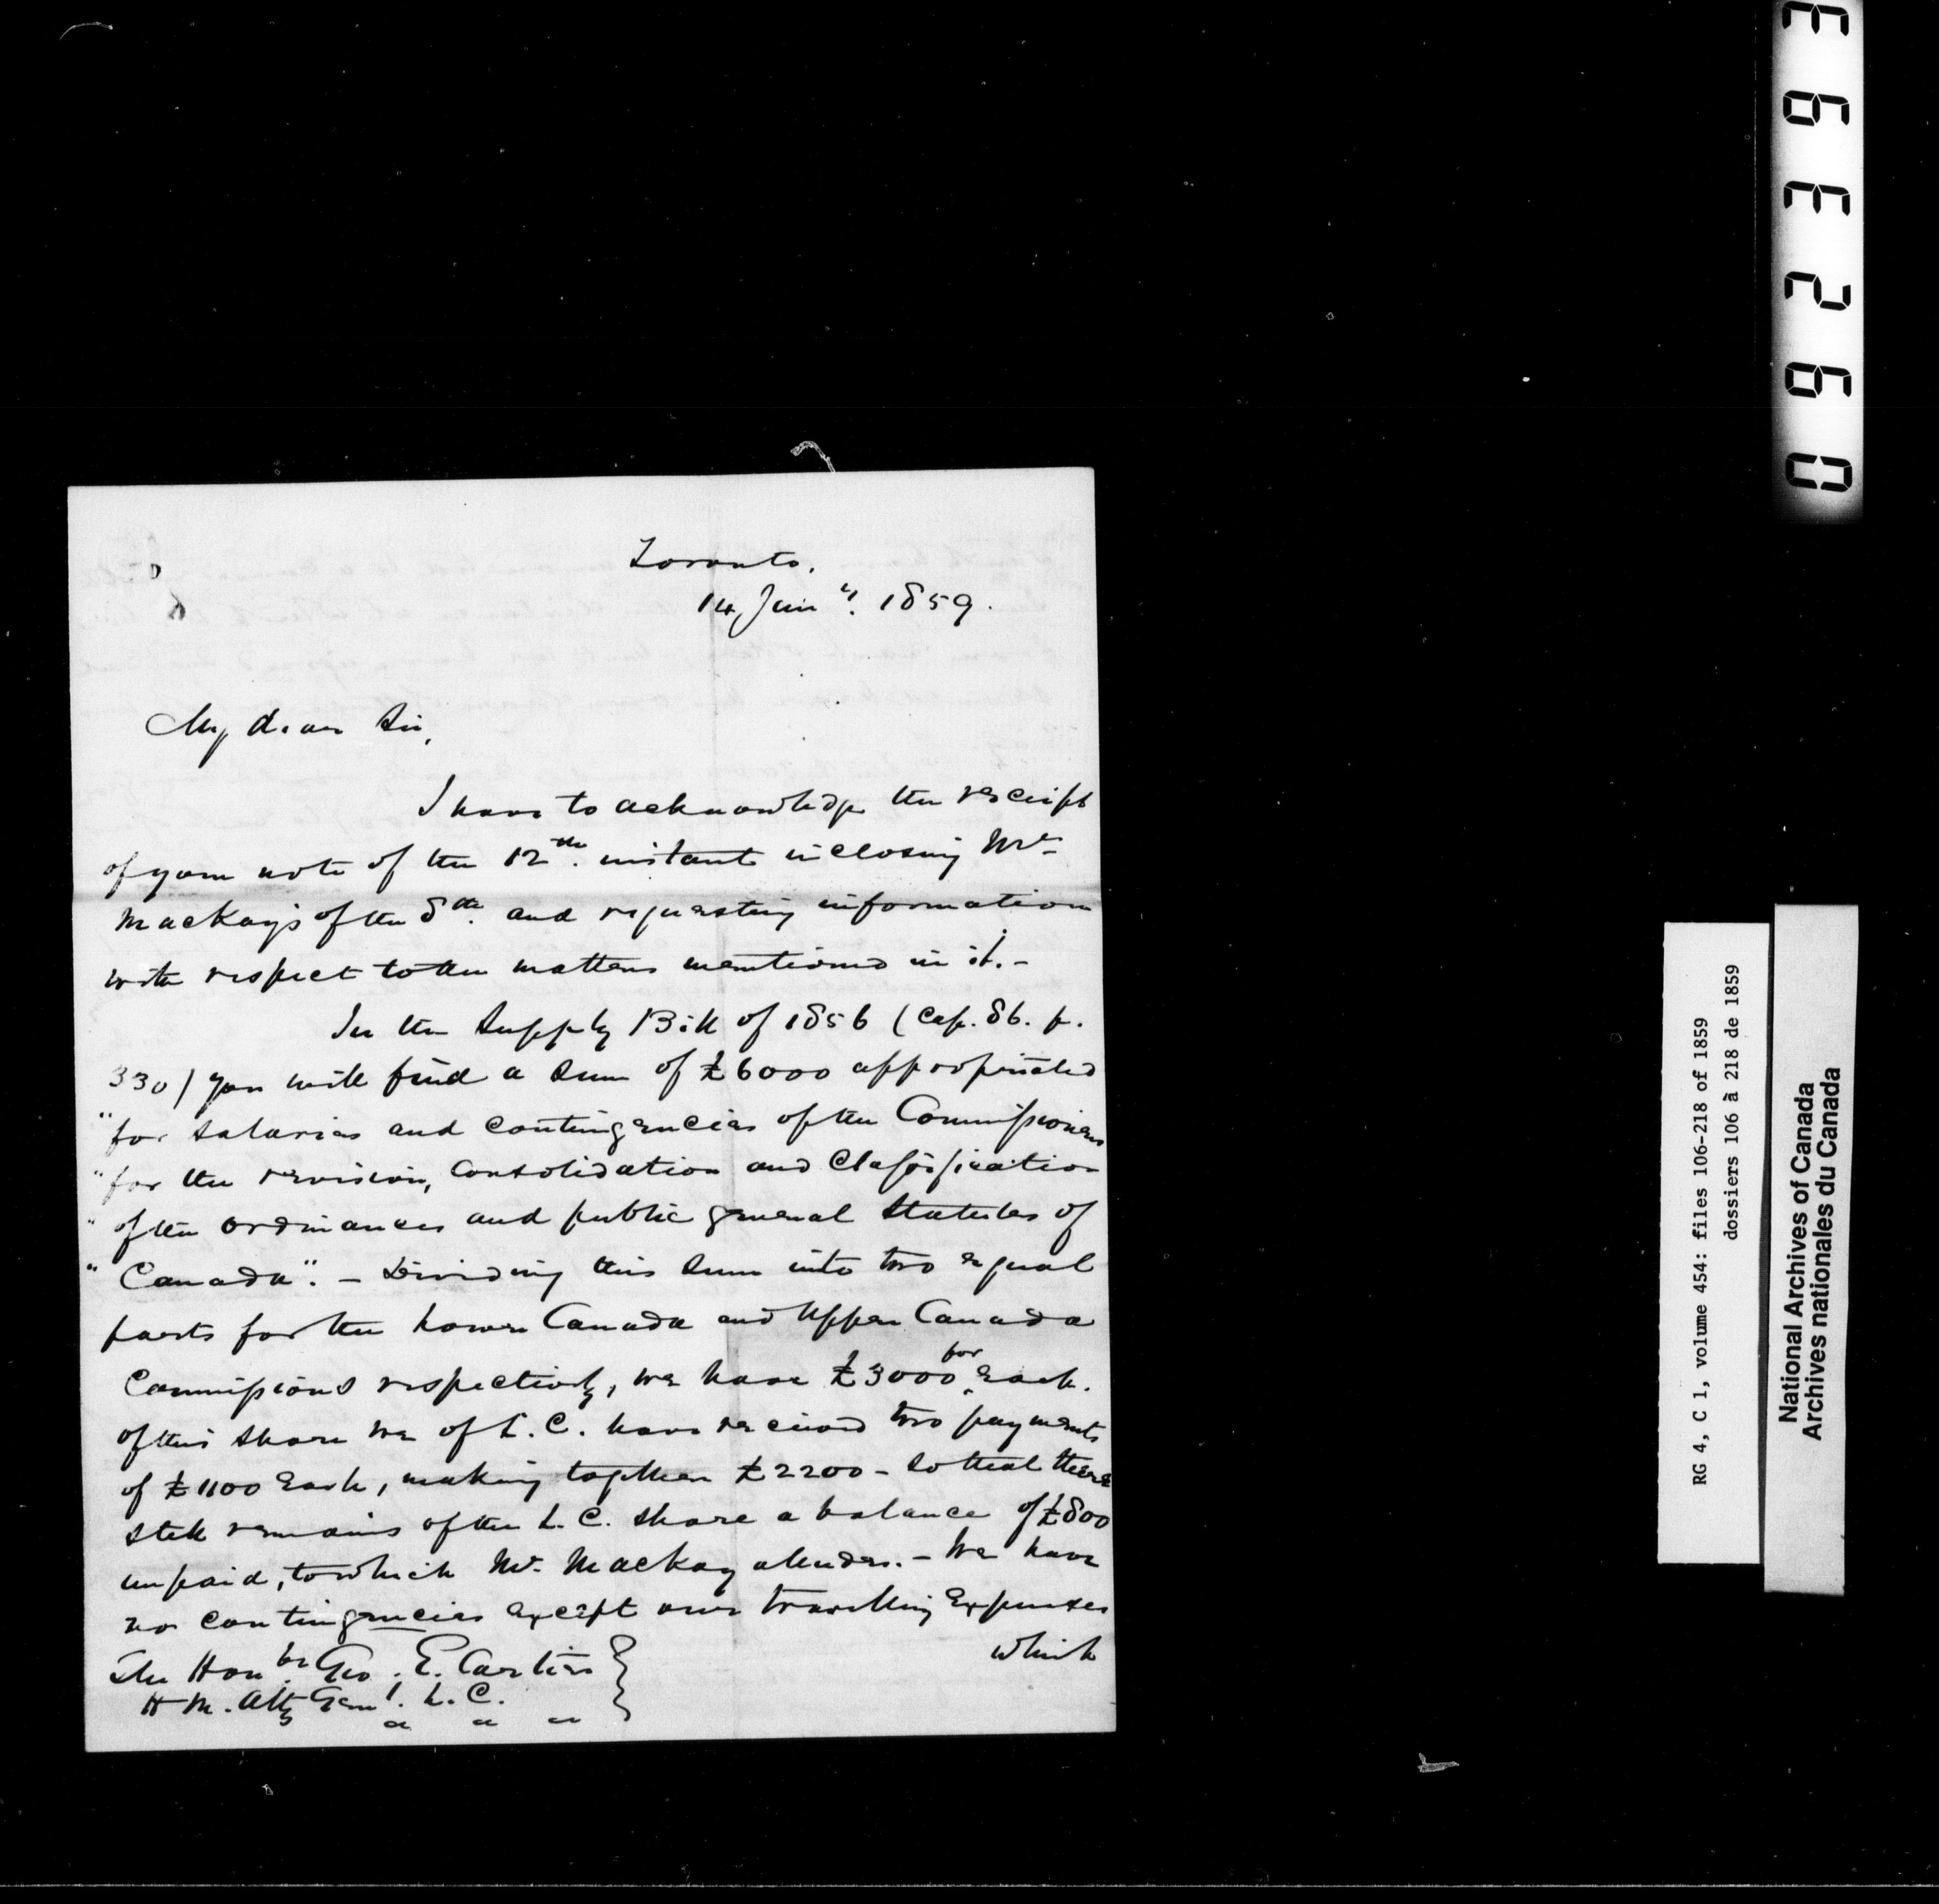 Toronto,
14 Jany. 1859.
My dear Sir,
I have to acknowledge the receipt
of your note of the 12th. instant inclosing Mr.
Mackay's of the 8th. and requesting information
with respect to the matters mentioned in it.-
In the Supply Bill of 1856 (Cap. 86. p.
330) you will find a sum of £6000 appropriated
"for salaries and contingencies of the Commissioners
"for the revision, consolidation and classification
"of the ordinances and public general Statutes of
"Canada". - Dividing this sum into two equal
parts for the Lower Canada and Upper Canada
Commissions respectively, we have £3000 for each.
of this share we of L. C. have received two payments
of £1100 each, making together £2200 - so that there
still remains of the L. C. share a balance of £800
unpaid, to which Mr. Mackay alludes. - We have
no contingencies except our travelling expenses
which
The Honble. Geo. E. Cartier
H. M. Atty Genl. L. C.
E6E260
RG 4, C 1, volume 454: files 106-218 of 1859
dossiers 106 à 218 de 1859
National Archives of Canada
Archives nationales du Canada